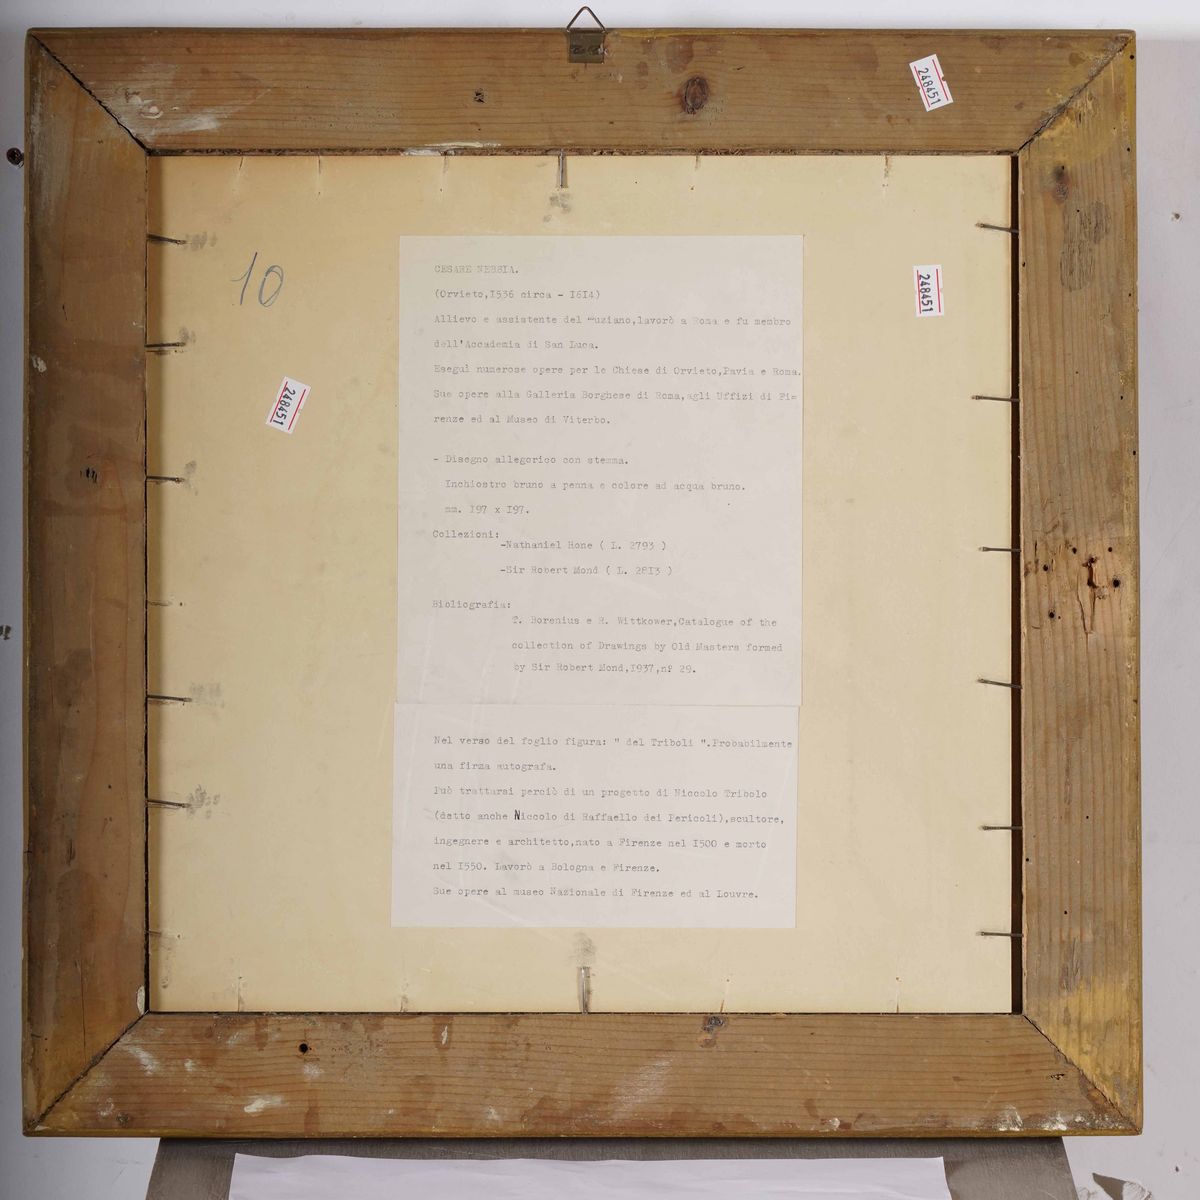 248451
10
248451
248451
CESARE NEBBIA.
(Orvieto,I536 circa - I6I4)
Allievo e assistente del Muziano,lavorò a Roma e fu membro
dell'Accademia di San Luca.
Eseguì numerose opere per le Chiese di Orvieto,Pavia e Roma.
Sue opere alla Galleria Borghese di Roma,agli Uffizi di Fi=
renze ed al Museo di Viterbo.
- Disegno allegorico con stemma.
Inchiostro bruno a penna e colore ad acqua bruno.
mm. I97 x I97.
Collezioni:
-Nathaniel Hone ( L. 2793 )
-Sir Robert Mond ( L. 28I3 )
Bioliografia:
T. Borenius e R. Wittkower,Catalogue of the
collection of Drawings by Old Masters formed
by Sir Robert Mond,I937,n° 29.
Nel verso del foglio figura: " del Triboli ".Probabilmente
una firza autografa.
Può trattarsi perciò di un progetto di Niccolo Tribolo
(detto anche Niccolo di Raffaello dei Pericoli),scultore,
ingegnere e architetto,nato a Firenze nel I500 e morto
nel I550. Lavorò a Bologna e Firenze.
Sue opere al museo Nazionale di Firenze ed al Louvre.